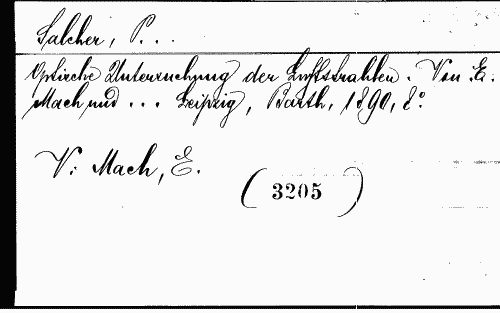 Salcher, P...
Optische Untersuchung der Luftstrahlen. Von E.
Mach und ... Leipzig, Barth, 1890, 8°.
V: Mach, E.
(3205)